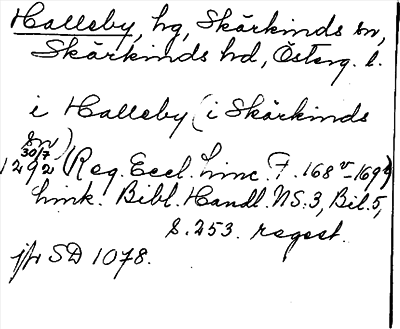 Halleby, hg, Skärkinds sn,
Skärkinds hd, Österg. l.
i Halleby (i Skärkinds
sn)
30/7
1292 (Reg. Eccl. Linc. F. 168v-169r)
Link. Bibl. Handl. NS:3, Bil. 5,
s. 253. regest.
jfr SD 1078.